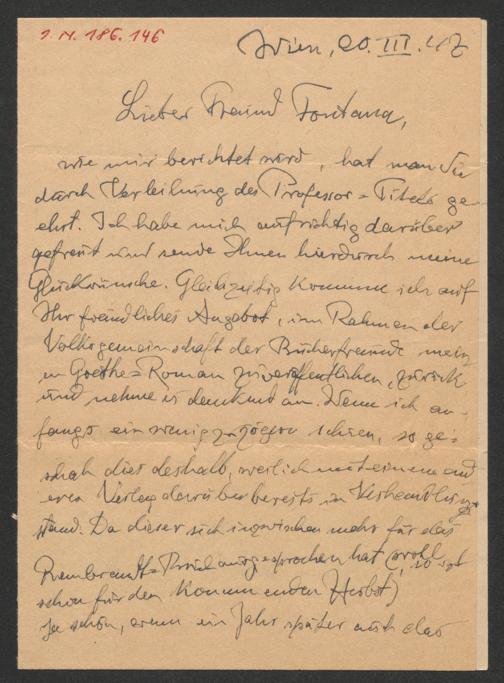 J. N. 186.146
Wien, 20. III. 47
Lieber Freund Fontana,
wie mir berichtet wird, hat man Sie
durch Verleihung des Professor-Titels ge-
ehrt. Ich habe mich aufrichtig darüber
gefreut und sende Ihnen hierdurch meine
Glückwünsche. Gleichzeitig komme ich auf
Ihr freundliches Angebot, im Rahmen der
Volksgemeinschaft der Bücherfreunde mein
en Goethe-Roman zu veröffentlichen, zurück
und nehme es dankend an. Wenn ich an-
fangs ein wenig zu zögern schien, so ge-
schah dies deshalb, weil ich mit einem and
eren Verlag darüber bereits in Verhandlung
stand. Da dieser sich inzwischen mehr für das
Rembrandt-Buch ausgesprochen hat (wohl
schon für den kommenden Herbst)
ja schön, wenn ein Jahr später auch das